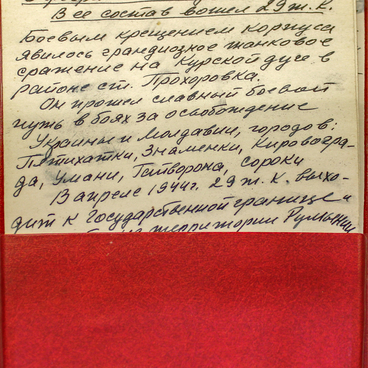 В ее состав вошел 29 т.к.
Боевым крещением корпуса
явилось грандиозное танковое
сражение на Курской дуге в
районе ст. Прохоровка.
Он прошел славный боевой
путь в боях за освобождение
Украины и Молдавии, городов:
Пятихатки, Знаменки, Кировогра-
да, Умани, Тетворока, сороки
В апреле 1944г. 29 т.к. выхо-
дит к Государственной границе и
территории Румынии